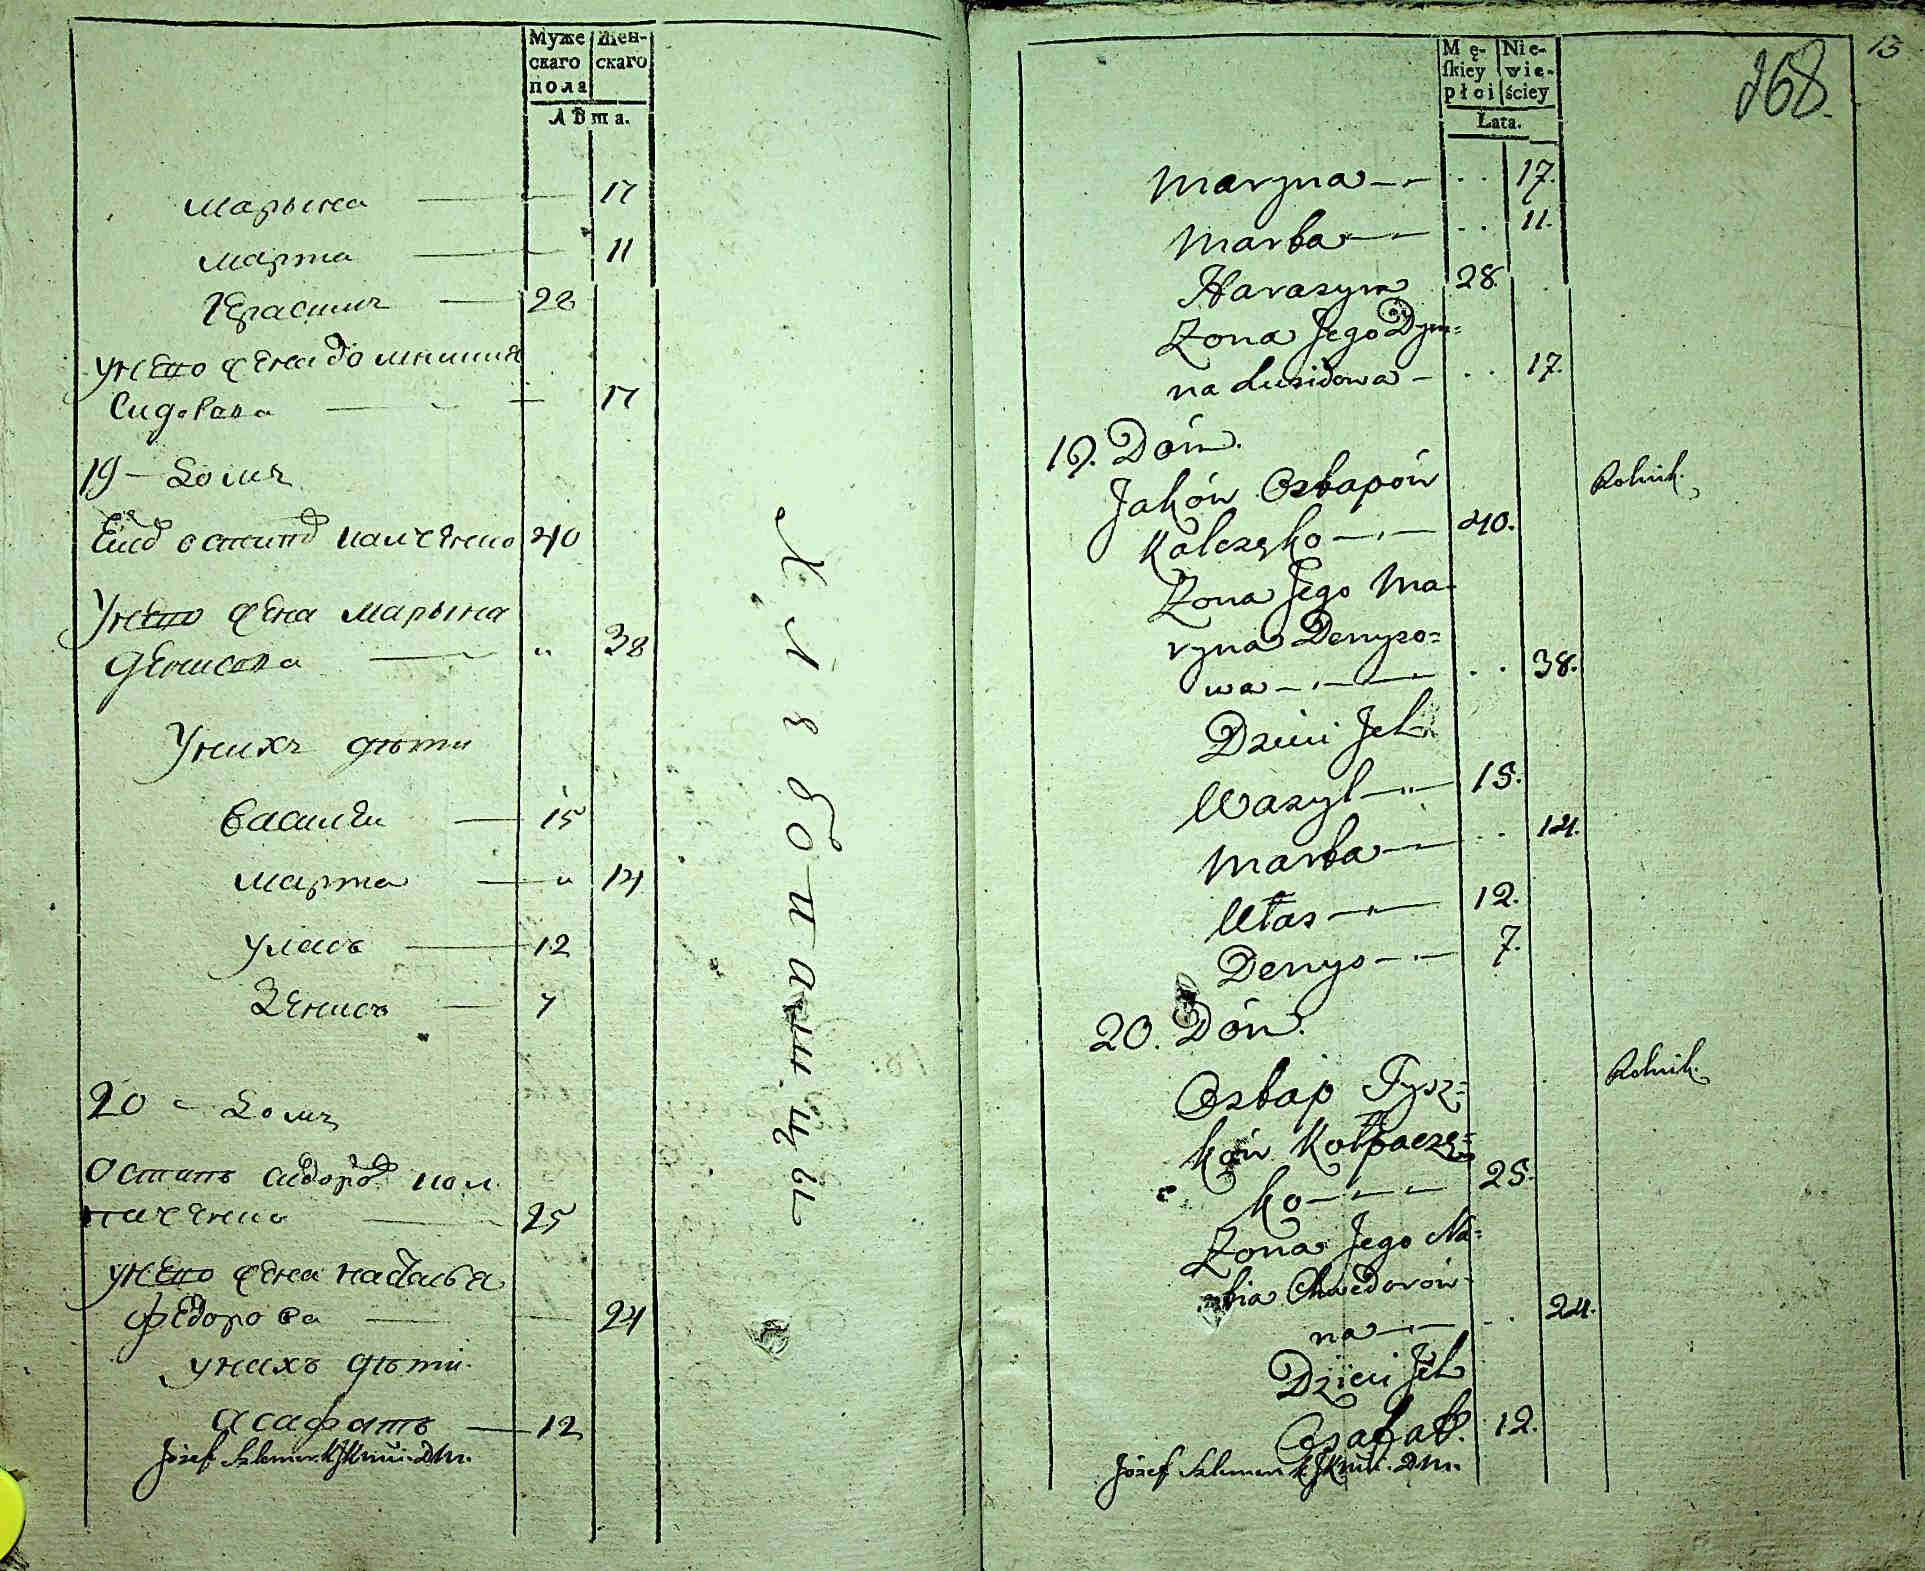 Муже
скаго
пола
Жен-
скаго
Лѣта.
Марына — 17
Марта — 11
Герасимъ — 28
Унего жена домникия
Сидорова — 17
19 — Домъ
остапов колпаченко 40
Унего жена Марына
Денисова — " 38
Унихъ дѣти
Василеи — 15
Марта — " 14
Уласъ — 12
Денисъ — 7
20 - Домъ
Остапъ сидоров кол
паченко — 25
унего жена наталья
федорова — 24
унихъ дѣти
Асафатъ — 12
Józef
Хлебопашцы
Mę-
ſkiey
płci
Nie-
wie-
ściey
Łata.
268.
13
Maryna — . . 17.
Marta — . . 11.
Harasym 28.
Zona Jego Dym=
na — . . 17.
19. Dóm.
Jaków Ostapów Rolnik.
Kołczęko — 40.
Zona Jego Ma-
ryna Denyso=
wa — . . 38.
Dzieci Jch
Wasyl — 15.
Marta — . . 14.
Ułas — 12.
Denys — 7.
20. Dóm.
Ostap Tysz= Rolnik.
ków Kołpaczę=
ko — 25.
Zona Jego Na=
talia Chwedorów-
na — . . 24.
Dzieci Jch
Osafat. 12.
Józef